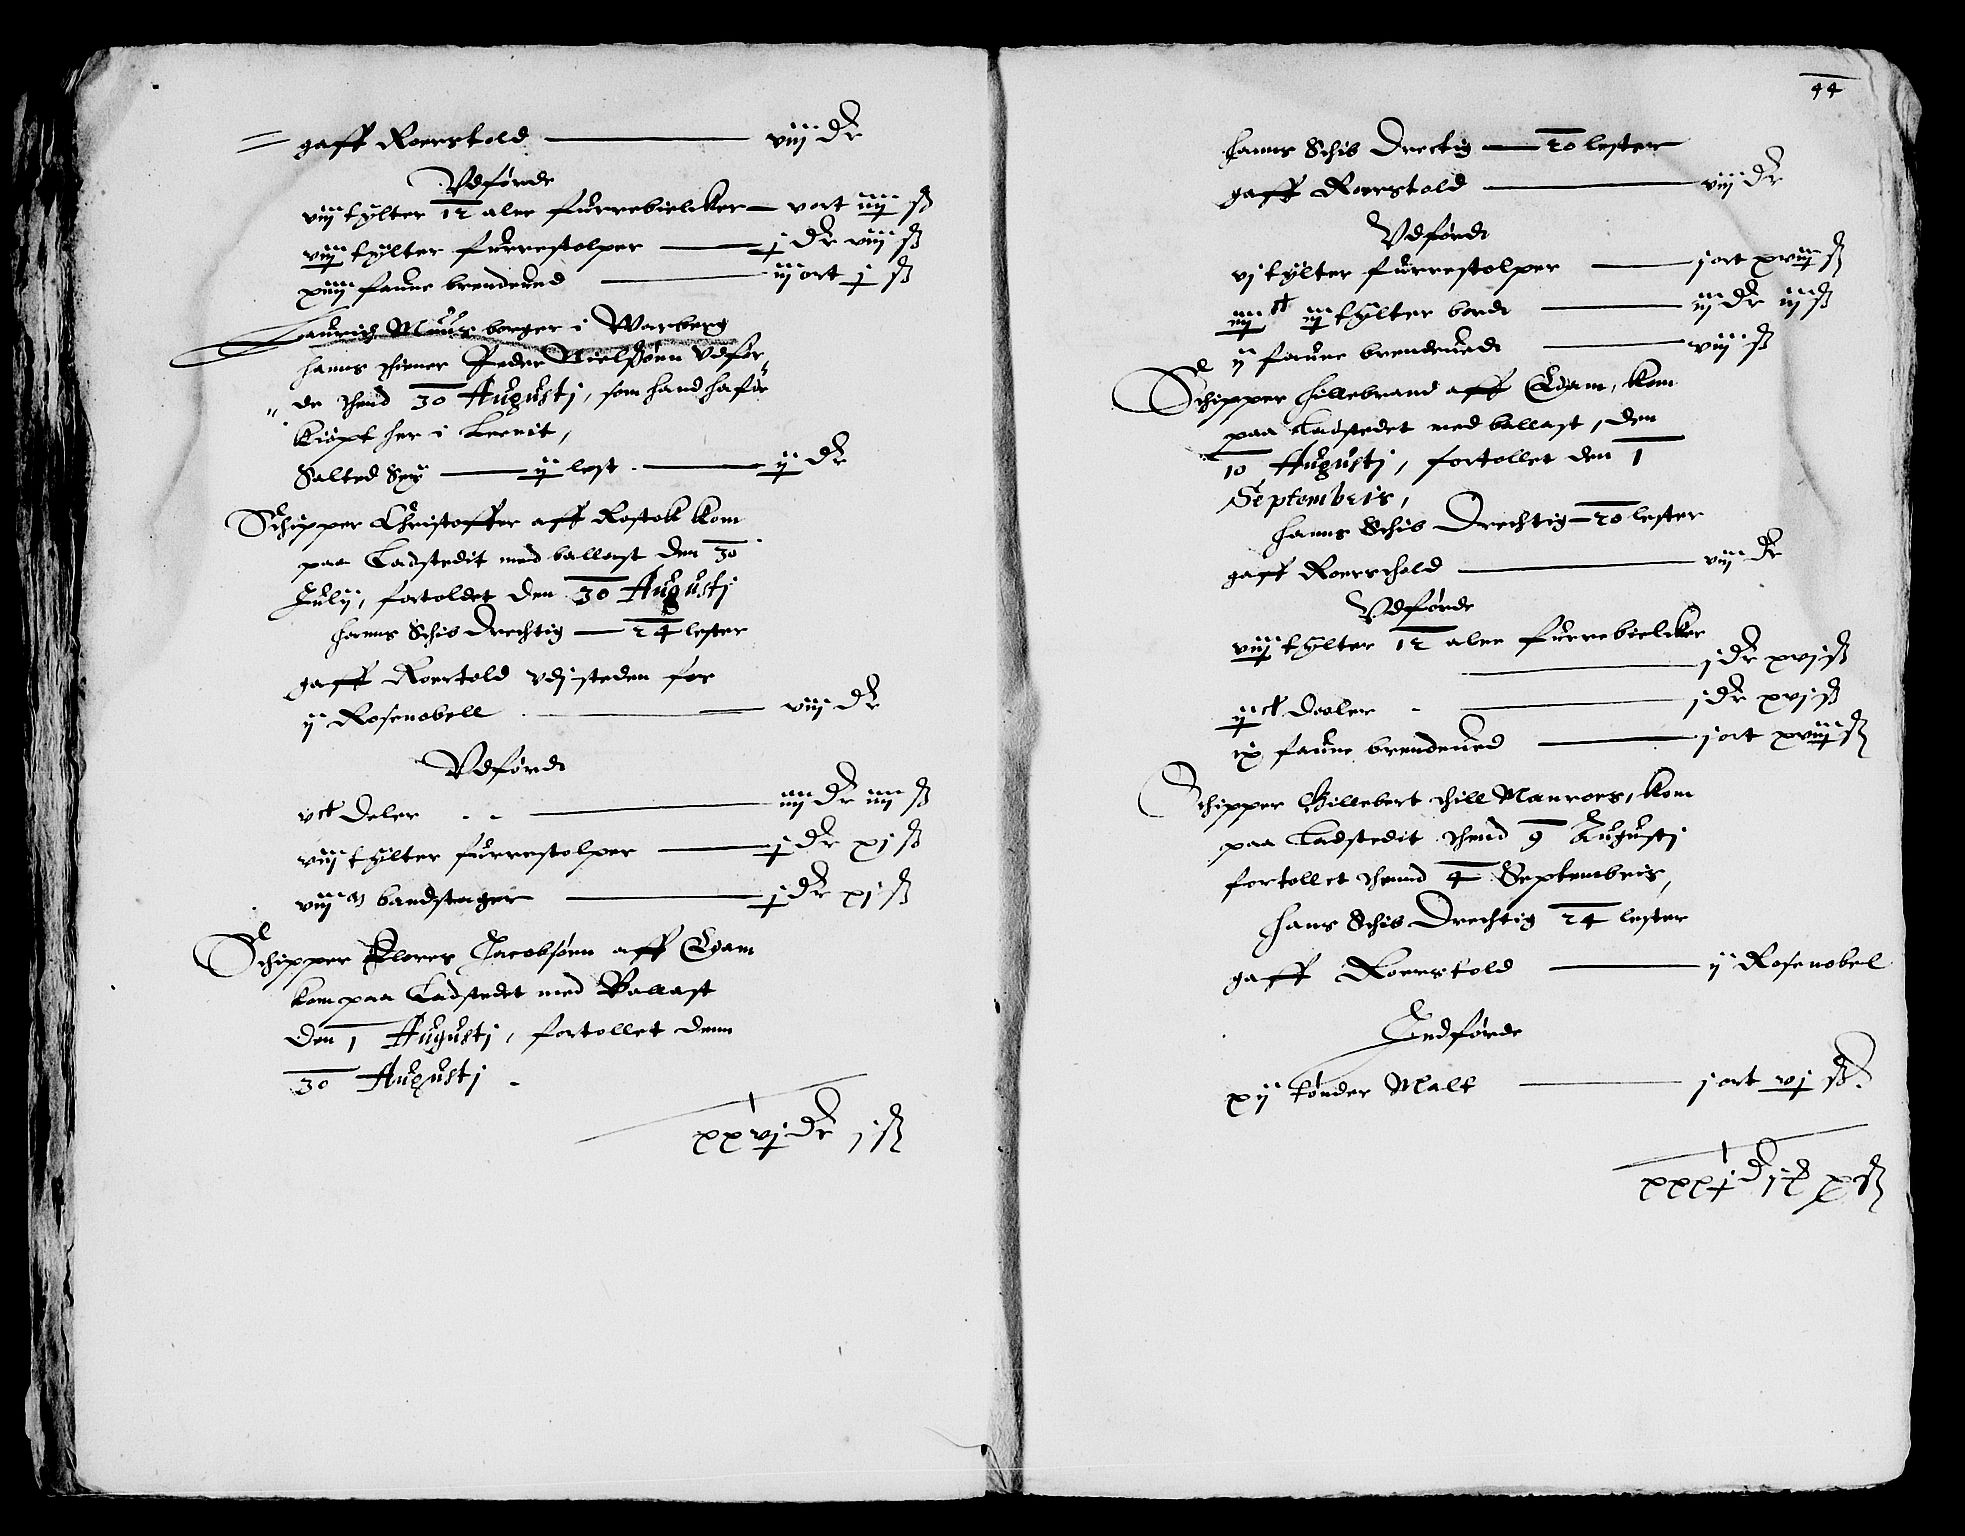 gaff Roerstold — viij dr
Vdførde
viij tylter 12 alne furrebielcker — j ort iiij ß
viij tylter furrestolper — j dr viij ß
xiiij faune brendeued — iij ort j ß
Lauritz Muus borger i Warberg
hanns thiener Peder Nielßøen vdfør
de thend 30 Augustj, som hand hafde
kiøpt her i Leenit,
Salted Sey — ij lest — ij dr
Schipper Christoffer aff Rostok kom
paa Ladstedit med ballast den 30
Julij, fortoldet den 30 Augustj
hanns Schib Drechtig — 24 lester
gaff Roertold vdj steden for
ij Rosenobell — viij dr
Vdførde
vct Deler — iiij dr iiij ß
viij tylter furrestolper — j dr xj ß
viij m bandstager — j dr xj ß
Schipper Flores Jacobsøen aff Edam
kom paa Ladstedet med Ballast
den 1 Augustj, fortollet denn
30 Augustj
xxvj dr j ß
44
hanns Schib Drectig — 20 lester
gaff Roerstold — viij dr
Vdførde
vj tylter furrestolper — j ort xviij ß
iiij ct iij tylter borde — iij dr iij ß
ij faune brendeuede — viij ß
Schipper Hillebrand aff Edam, kom
paa Ladstedet med ballast, den
10 Augustj, fortollet den 1
Septembris,
hanns Schib Drechtig — 20 lester
gaff Roerschold — viij dr
Vdførde
viij tylter 12 alne furrebielcker
— j dr xvj ß
ij ct Deeler — j dr xvj ß
ix faune brendeued — j ort xviij ß
Schipper Gillebert thill Manroes, kom
paa Ladstedit thend 9 Augustj
fortollet thennd 4 Septembris,
Hans Schib Drechtig 24 lester
gaff Roerstold — ij Rosenobel
Indførde
xij tønder Malt — j ort vj ß
xxxj dr j ort x ß